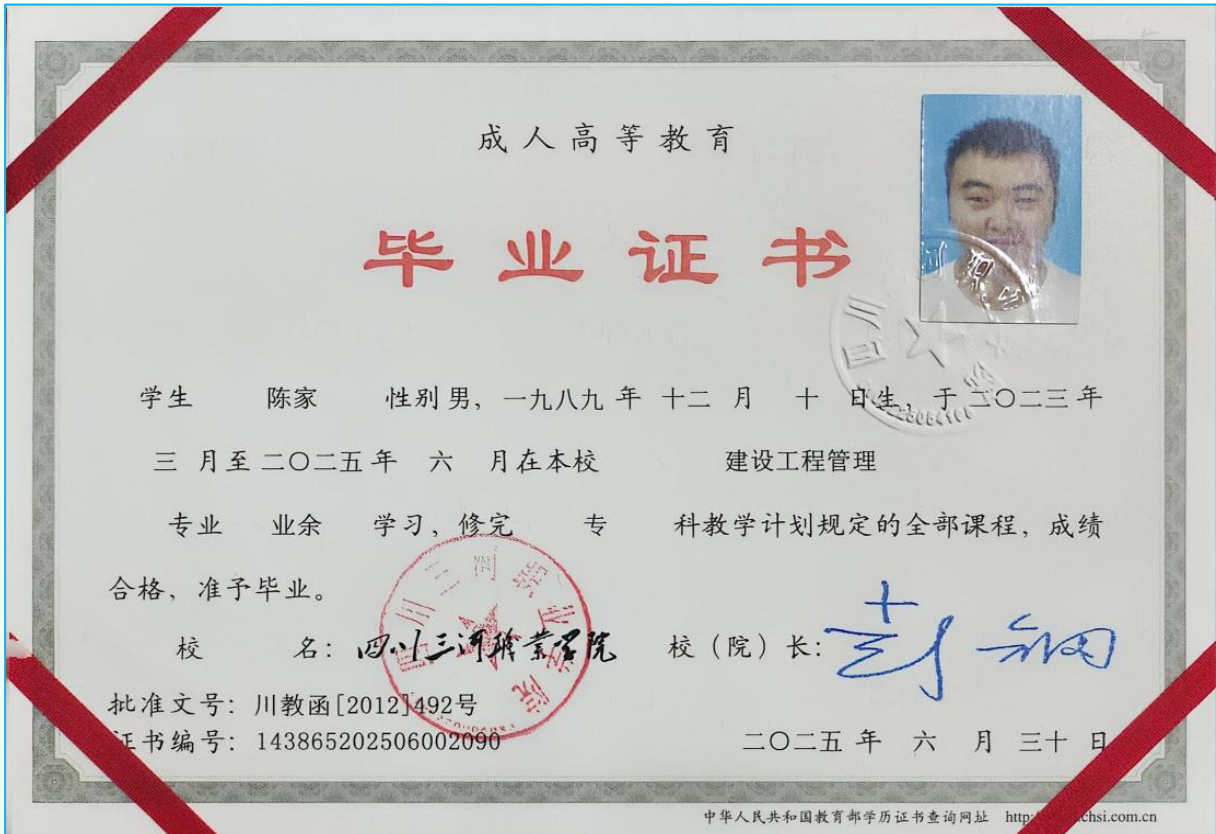 成人高等教育
毕业证书
学生 陈家 性别 男，一九八九 年 十二 月 十 日生，于二〇二三年
三 月至二〇二五年 六 月在本校 建设工程管理
专业 业余 学习，修完 专 科教学计划规定的全部课程，成绩
合格，准予毕业。
校 名：四川三河職業学院 校（院）长：
批准文号：川教函[2012]492号
证书编号：143865202506002090 二〇二五 年 六 月 三十 日
四川三河职业学院
中华人民共和国教育部学历证书查询网址 http: chsi.com.cn